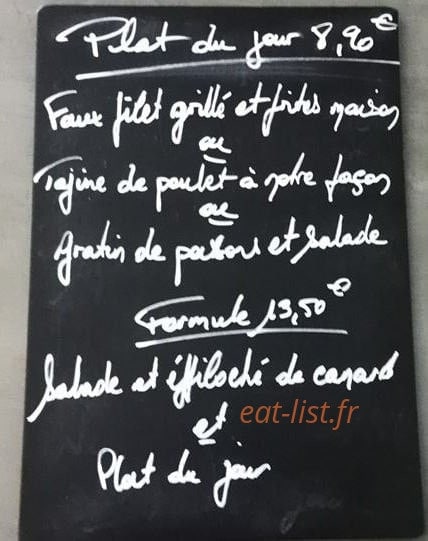 Plat du jour 8,90€
Faux filet grillé et frites maison
ou
Tajine de poulet à notre façon
ou
gratin de poissons et salade
Formule 13,50€
Salade et éffiloché de canard
et
eat-list.fr
Plat du jour